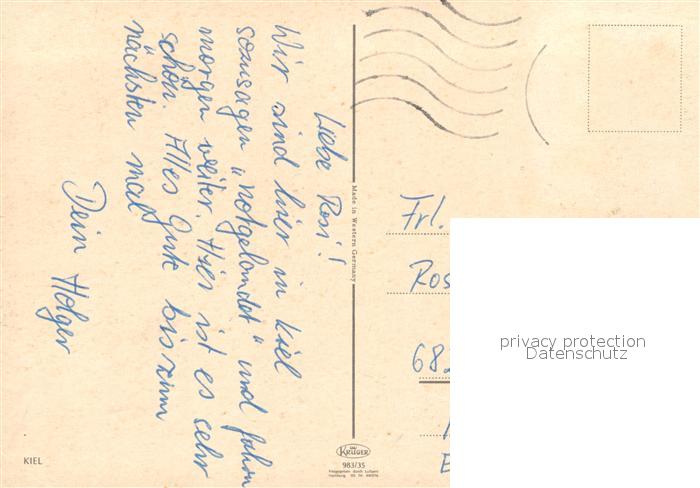 Liebe Rosi!
Wir sind hier in Kiel
sozusagen "notgelandet" und fahren
morgen weiter. Hier ist es sehr
schön. Alles Gute bis zum
nächsten mal
Dein Holger
KIEL
Made in Western Germany
KRÜGER
983/35
Frl.
Ros
68
privacy protection
Datenschutz